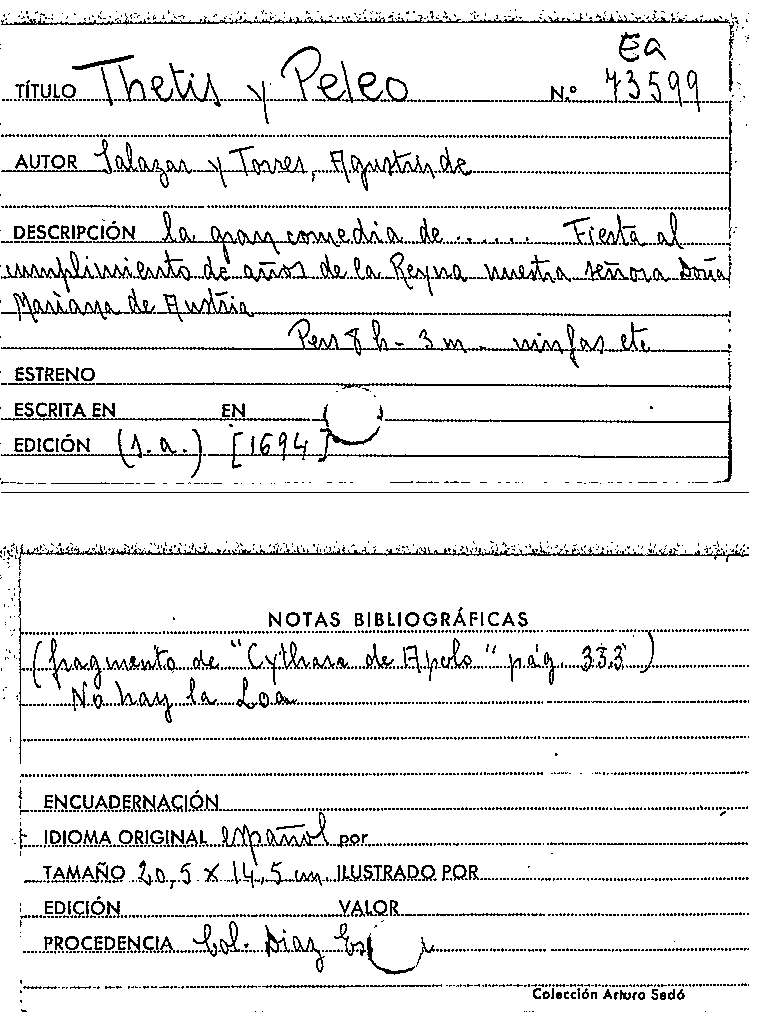 Ea
TÍTULO Thetis y Peleo N.º 73599
AUTOR Salazar y Torres, Agustín de
DESCRIPCIÓN la gran comedia de ...... Fiesta al
cumplimiento de años de la Reyna nuestra señora Doña
Mariana de Austria
Pers 8 h - 3 m - ninfas etc
ESTRENO
ESCRITA EN EN
EDICIÓN (s.a.) [1694]
NOTAS BIBLIOGRÁFICAS
(fragmento de "Cythara de Apolo" pág. 333)
No hay la Loa
ENCUADERNACIÓN
IDIOMA ORIGINAL español por
TAMAÑO 20,5 x 14,5 cm ILUSTRADO POR
EDICIÓN VALOR
PROCEDENCIA Col. Diaz
Colección Arturo Sedó